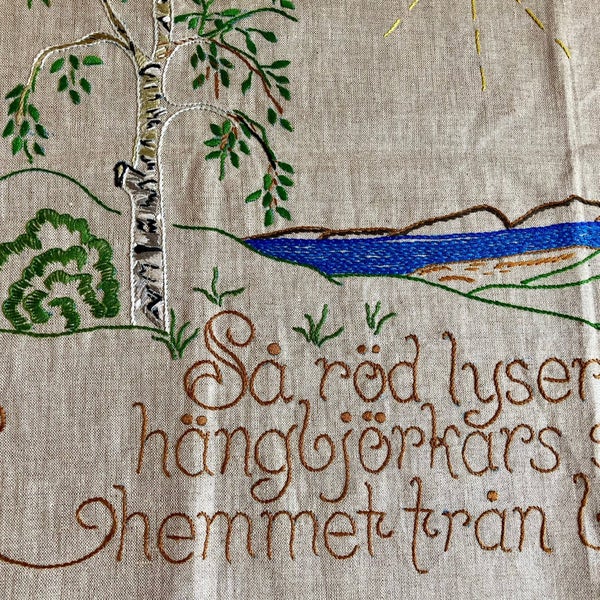 Så röd lyser
hängbjörkars
hemmet från